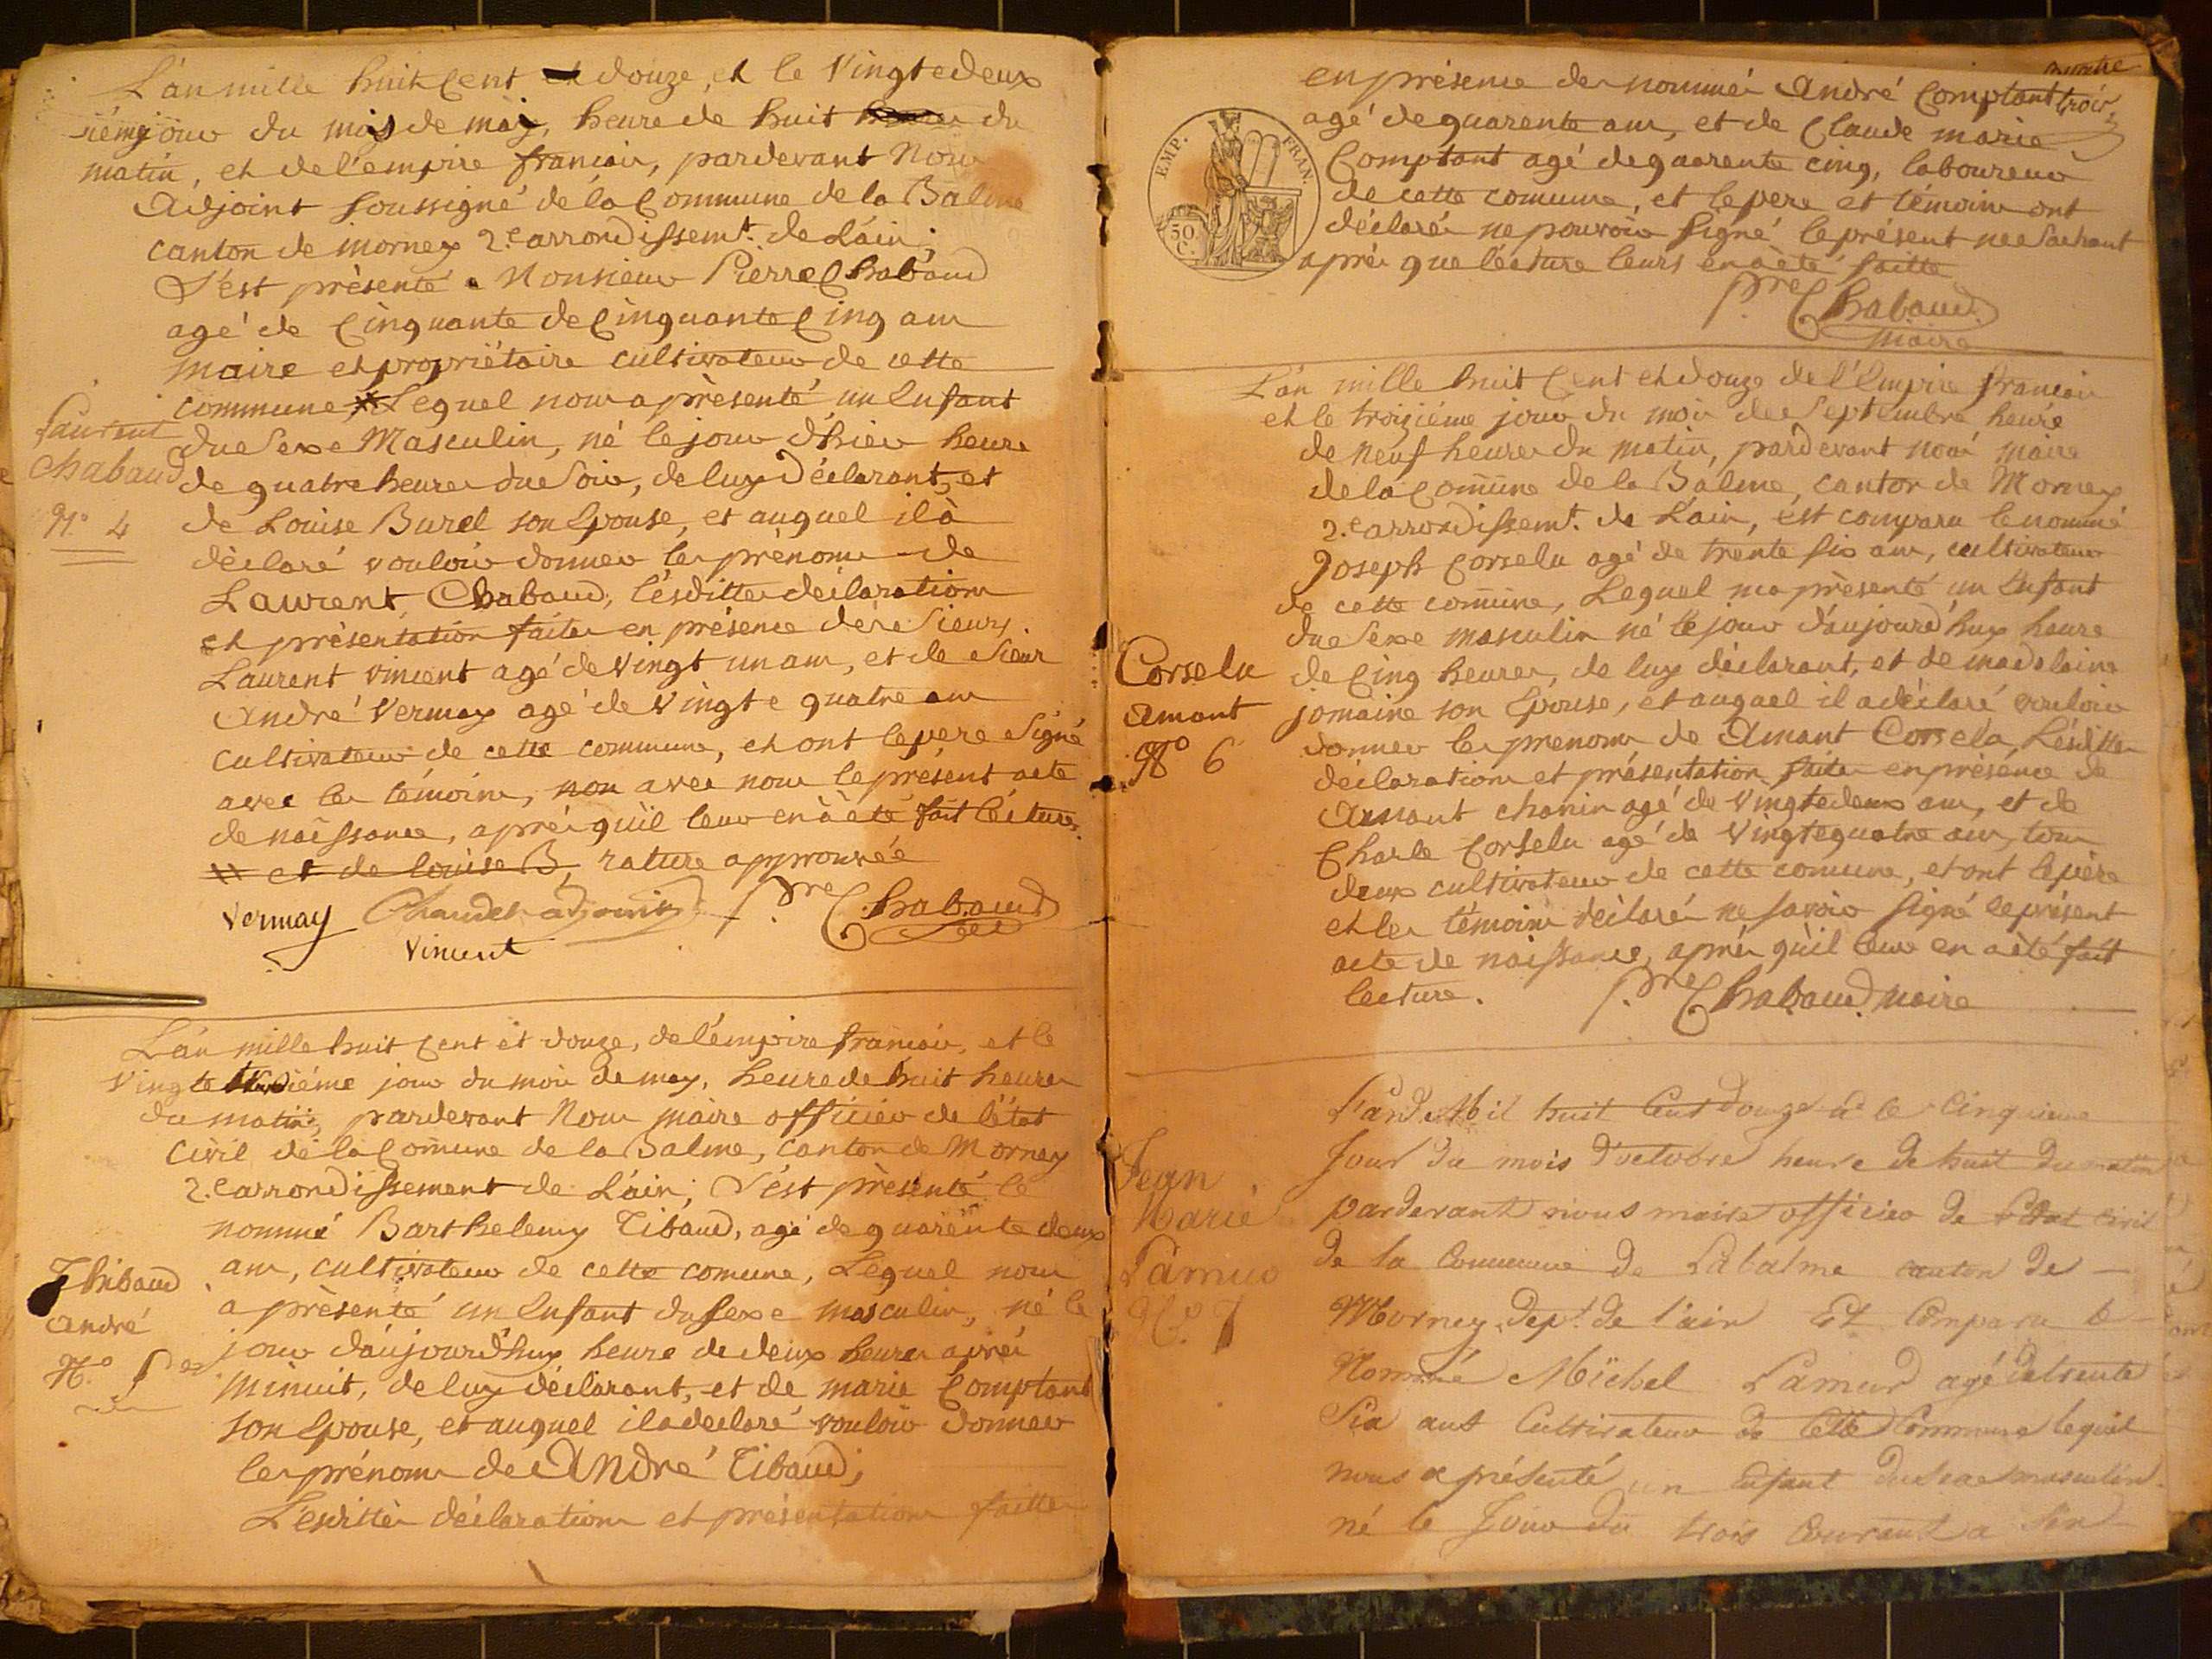 L'an mille huit Cent et douze, et le Vingtedeux
ièmejour du mois de may, heure de huit du
matin, et de l'empire francois, pardevant Nous
Adjoint soussigné de la Commune de la Balme
canton de mornex 2.e arrondissemt. de L'ain;
S'est présenté a Monsieur Pierre Chabaud
agé de Cinquante de Cinquante Cinq ans
maire et propriétaire cultivateur de cette
commune Lequel nous a présenté un Enfant
du Sexe Masculin, né le jour d'hier heure
de quatre heures du Soir, de luy Déclarant, et
de Louise Burel son Epouse, et auquel il à
déclaré vouloir donner les prénoms de
Laurent Chabaud, lesdittes déclarations
et présentation faites en présence de Sieurs
Laurent vincent agé de vingt un ans, et de Sieur
André Vermay agé de Vingt e quatre ans
cultivateurs de cette commune, et ont le pere Signé
avec les témoins, non avec nous le présent acte
de naissance, après qu'il leur en à été fait lecture.
et de louise B, rature approuvée
Laurent
Chabaud
N.o 4
Vermay Chaudet adjoint P.re Chabaud
Vincent
L'an mille huit Cent et douze, de l'empire francois, et le
Vingte ième jour du mois de may, heure de huit heures
du matin, pardevant Nous maire officier de l'état
Civil de la Comune de la Balme, Canton de Mornex
2.e arrondissement de L'ain; S'est présenté le
nommé Barthelemy Tibaud, agé de quarente deux
ans, cultivateur de cette comune, Lequel nous
a présenté un Enfant du sexe masculin, né le
jour d'aujourd'huy heure de deux heures après
minuit, de luy déclarant, et de marie Comptant
son Epouse, et auquel il a declaré vouloir donner
les prénoms de André Tibaud;
Lesdittes déclarations et présentations faittes
Thibaud
André
N.o 5
en présence des nommés André Comptant
agé de quarente ans, et de Claude marie
Comptant agé de quarente cinq, laboureurs
de cette comune, et le pere et témoins ont
déclarés ne pouvoir signé le présent ne Sachant
après que lecture leurs en a été faitte
P.re Chabaud
maire
EMP. FRAN.
50
C.
L'an mille huit Cent et douze de l'Empire francois
et le troizième jour du mois de Septembre heure
de neuf heures du matin, pardevant nous maire
de la Comune de la Balme, canton de Mornex
2.e arrondissemt. de L'ain, est comparu le nommé
Joseph Corselu agé de trente six ans, cultivateur
de cette comune, Lequel ma présenté un Enfant
du Sexe masculin né le jour d'aujourd'huy heure
de Cinq heures, de luy déclarant, et de madelaine
jomaine son Epouse, et auquel il a déclaré vouloir
donner les prenoms de Amant Corselu, Lesdittes
déclarations et présentation faites en présence de
Amant chanin agé de vingtedeux ans, et de
Charle Corselu agé de Vingtequatre ans, tous
deux cultivateurs de cette comune, et ont le père
et les témoins déclarés ne savoir signé le présent
acte de naissance, après qu'il leur en a été fait
lecture. P.re Chabaud maire
Corselu
Amant
N.o 6
L'an Mil huit Cent Douze et le Cinquieme
Jour du mois d'octobre heure de huit du matin
pardevant nous maire officier de l'état civil
de la Commune de Labalme canton de
Mornex, dept. de l'ain Est Comparu le
Nommé Michel Lamur agé de trente
Six ans Cultivateur de Cette Commune lequel
nous a présenté un Enfant du Sexe masculin
né le Jour du trois Courant a
Jean
Marie
Lamur
N.o 7